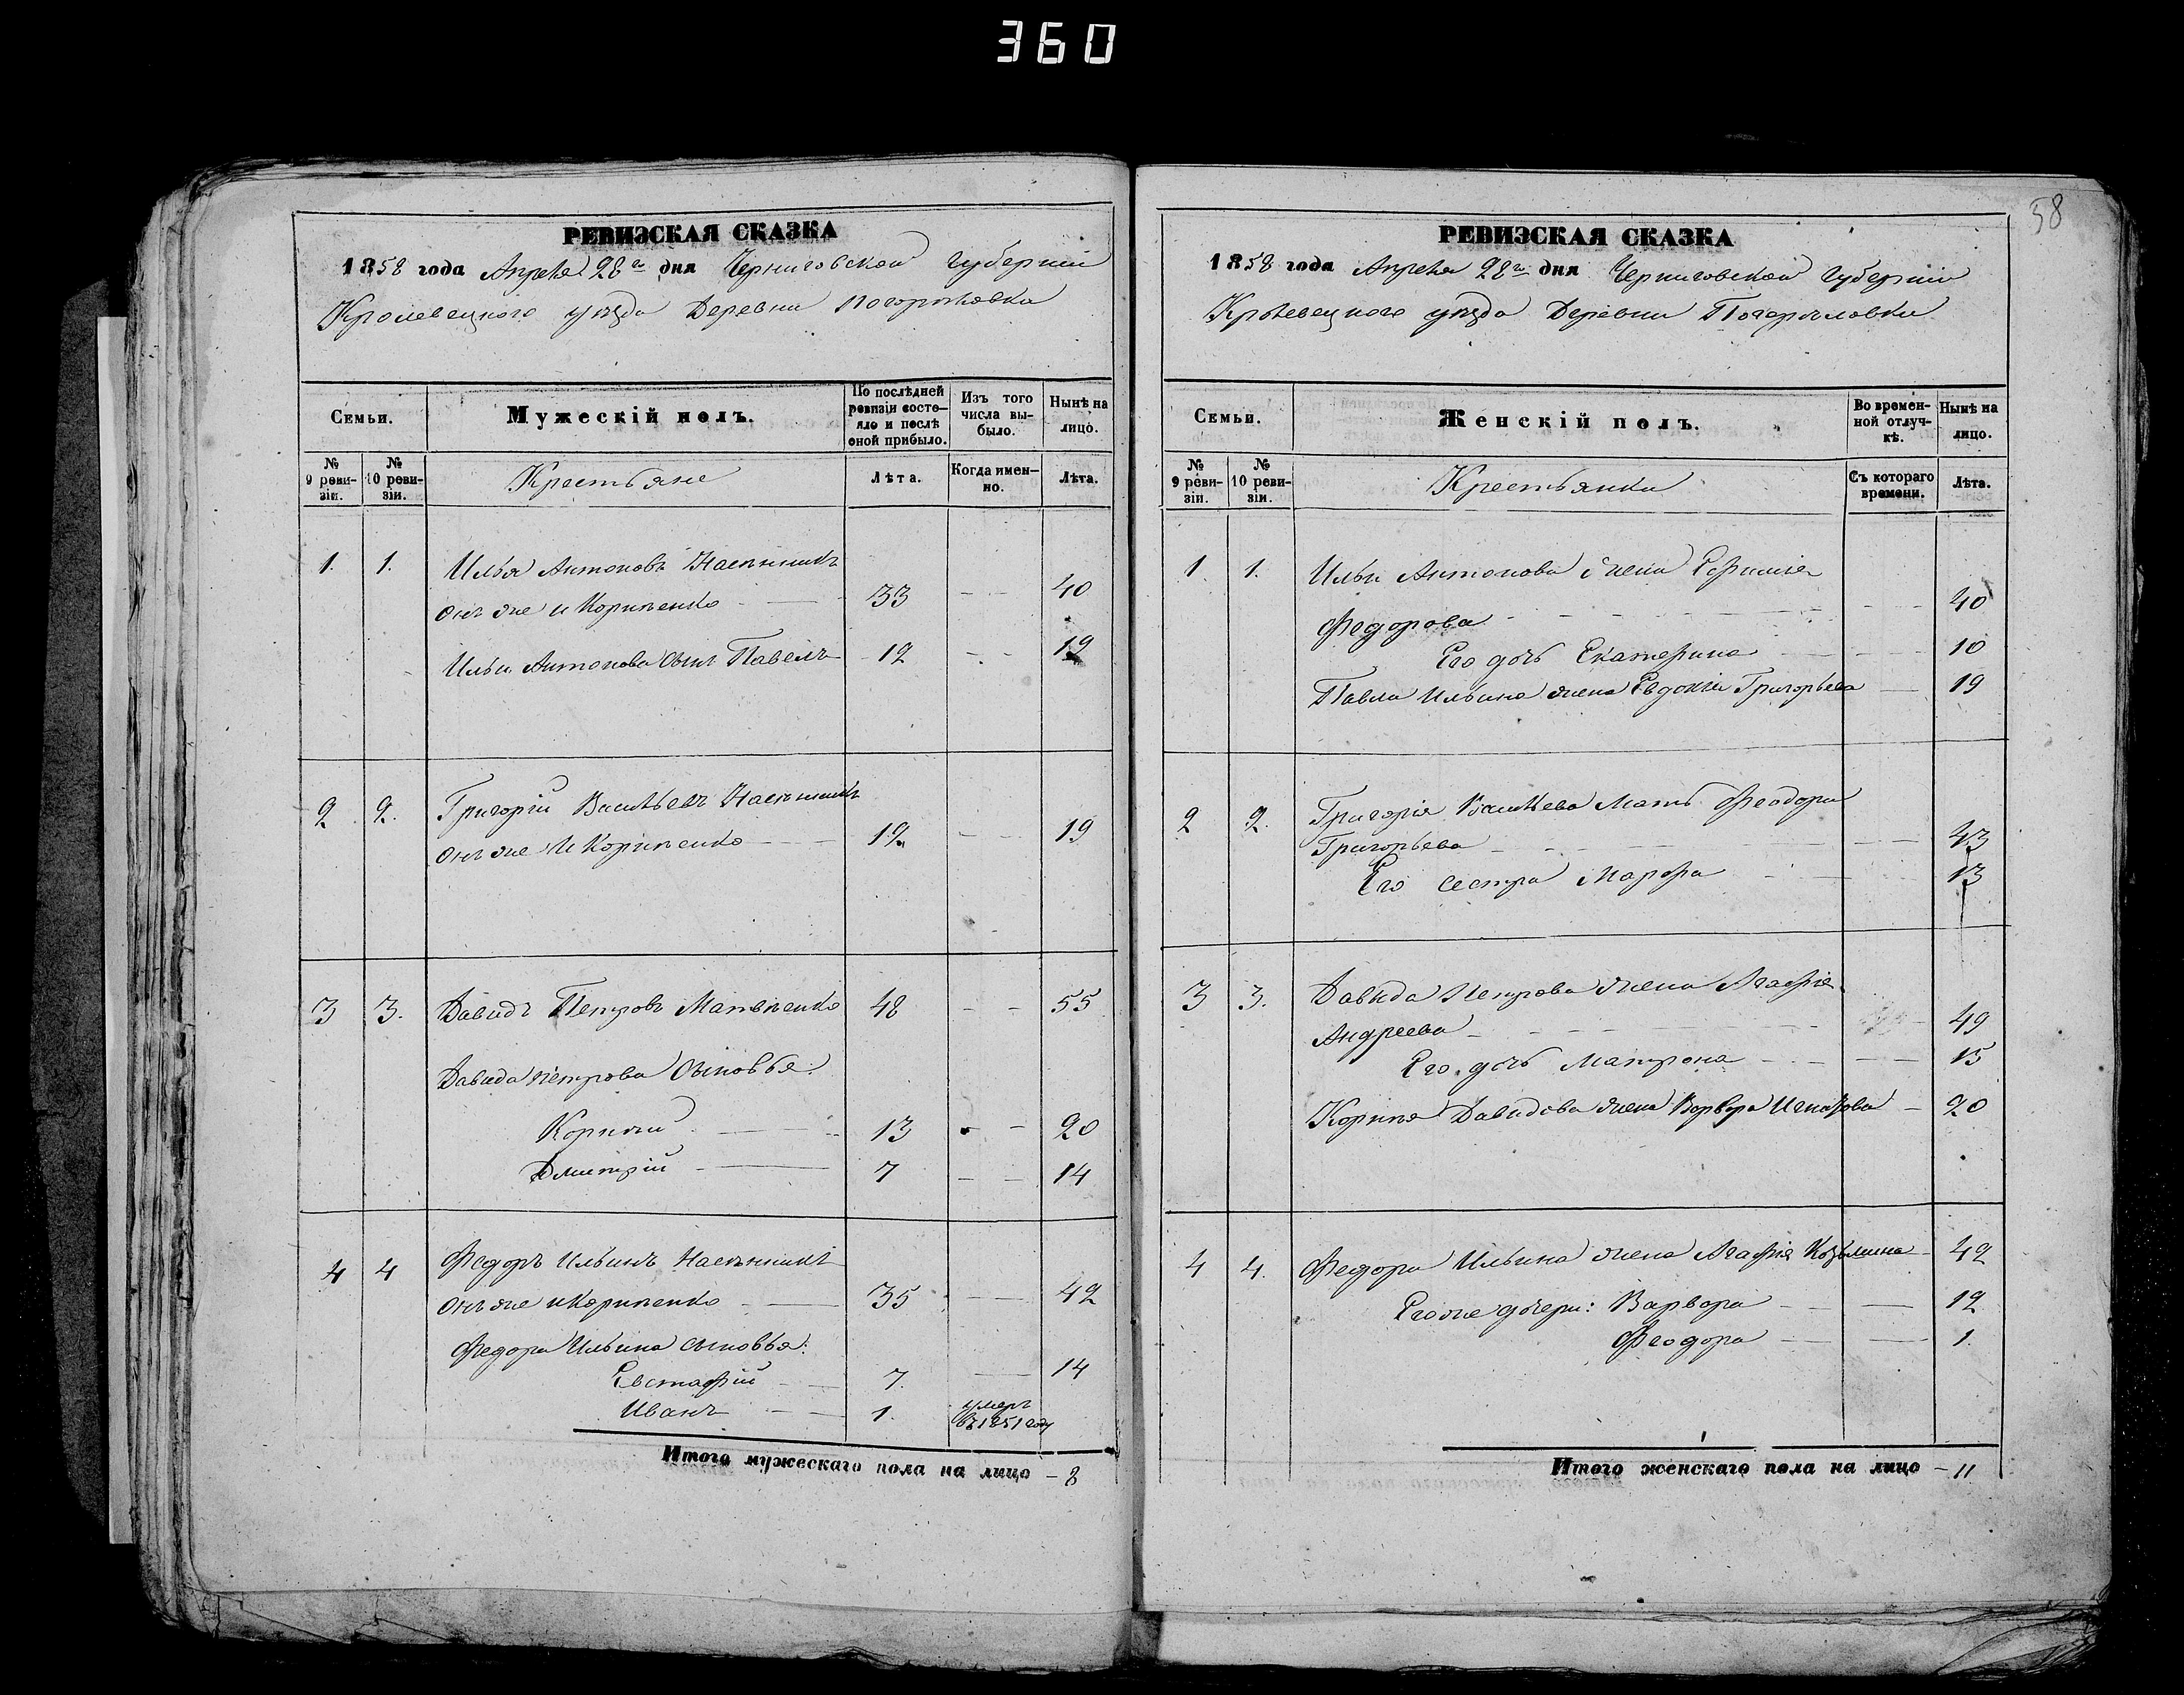 360
58
РЕВИЗСКАЯ СКАЗКА
1858 года Апреля 28го дня Черниговской губерніи
Кролевецкого уѣзда Деревни Погорѣловки
Семьи.
Мужескій полъ.
По послѣдней ревизіи состояло и послѣ оной прибыло.
Изъ того числа выбыло.
Нынѣ на лицо.
№ 9 ревизіи.
№ 10 ревизіи.
Крестьяне
Лѣта.
Когда именно.
Лѣта.
1. 1. Илья Антоновъ
онъ же и Корниенко 33 40
Ильи Антонова сынъ Павелъ 12 19
2 2. Григорій Васильевъ
онъ же и Корниенко 12 19
3 3. Давидъ Петровъ Матвѣенко 48 55
Давида Петрова Сыновья:
Корнѣй 13 20
Дмитрій 7 14
4 4 Федоръ Ильинъ
онъ же и Корниенко 35 42
Федора Ильина сыновья:
Евстафій 7. 14
Иванъ 1. умеръ
въ 1851 году
Итого мужескаго пола на лицо – 8
РЕВИЗСКАЯ СКАЗКА
1858 года Апреля 28го дня Черниговской губерніи
Кролевецкого уѣзда Деревни Погорѣловки
Семьи.
Женскій полъ.
Во временной отлучкѣ.
Нынѣ на лицо.
№ 9 ревизіи.
№ 10 ревизіи.
Крестьянки
Съ котораго времени.
Лѣта.
1 1. Ильи Антонова жена Ефимия
Федорова 40
Его дочь Екатерина 10
Павла Ильина жена Евдокия Григорьева 19
2 2. Григорія Васильева Мать Феодора
Григорьева 43
Его сестра Марфа 13
3 3. Давида Петрова жена Агафія
Андреева 49
Его дочь Матрона 15
Корнѣя Давидова жена Варвара Игнатова 20
4 4. Федора Ильина жена Агафія Козьмина 42
Его же дочери: Варвара 12
Феодора 1.
Итого женскаго пола на лицо – 11